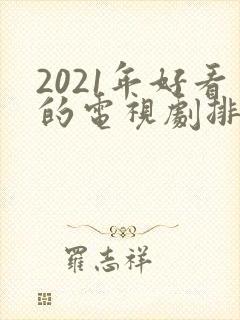 2021年好看
的電視劇排
羅志祥